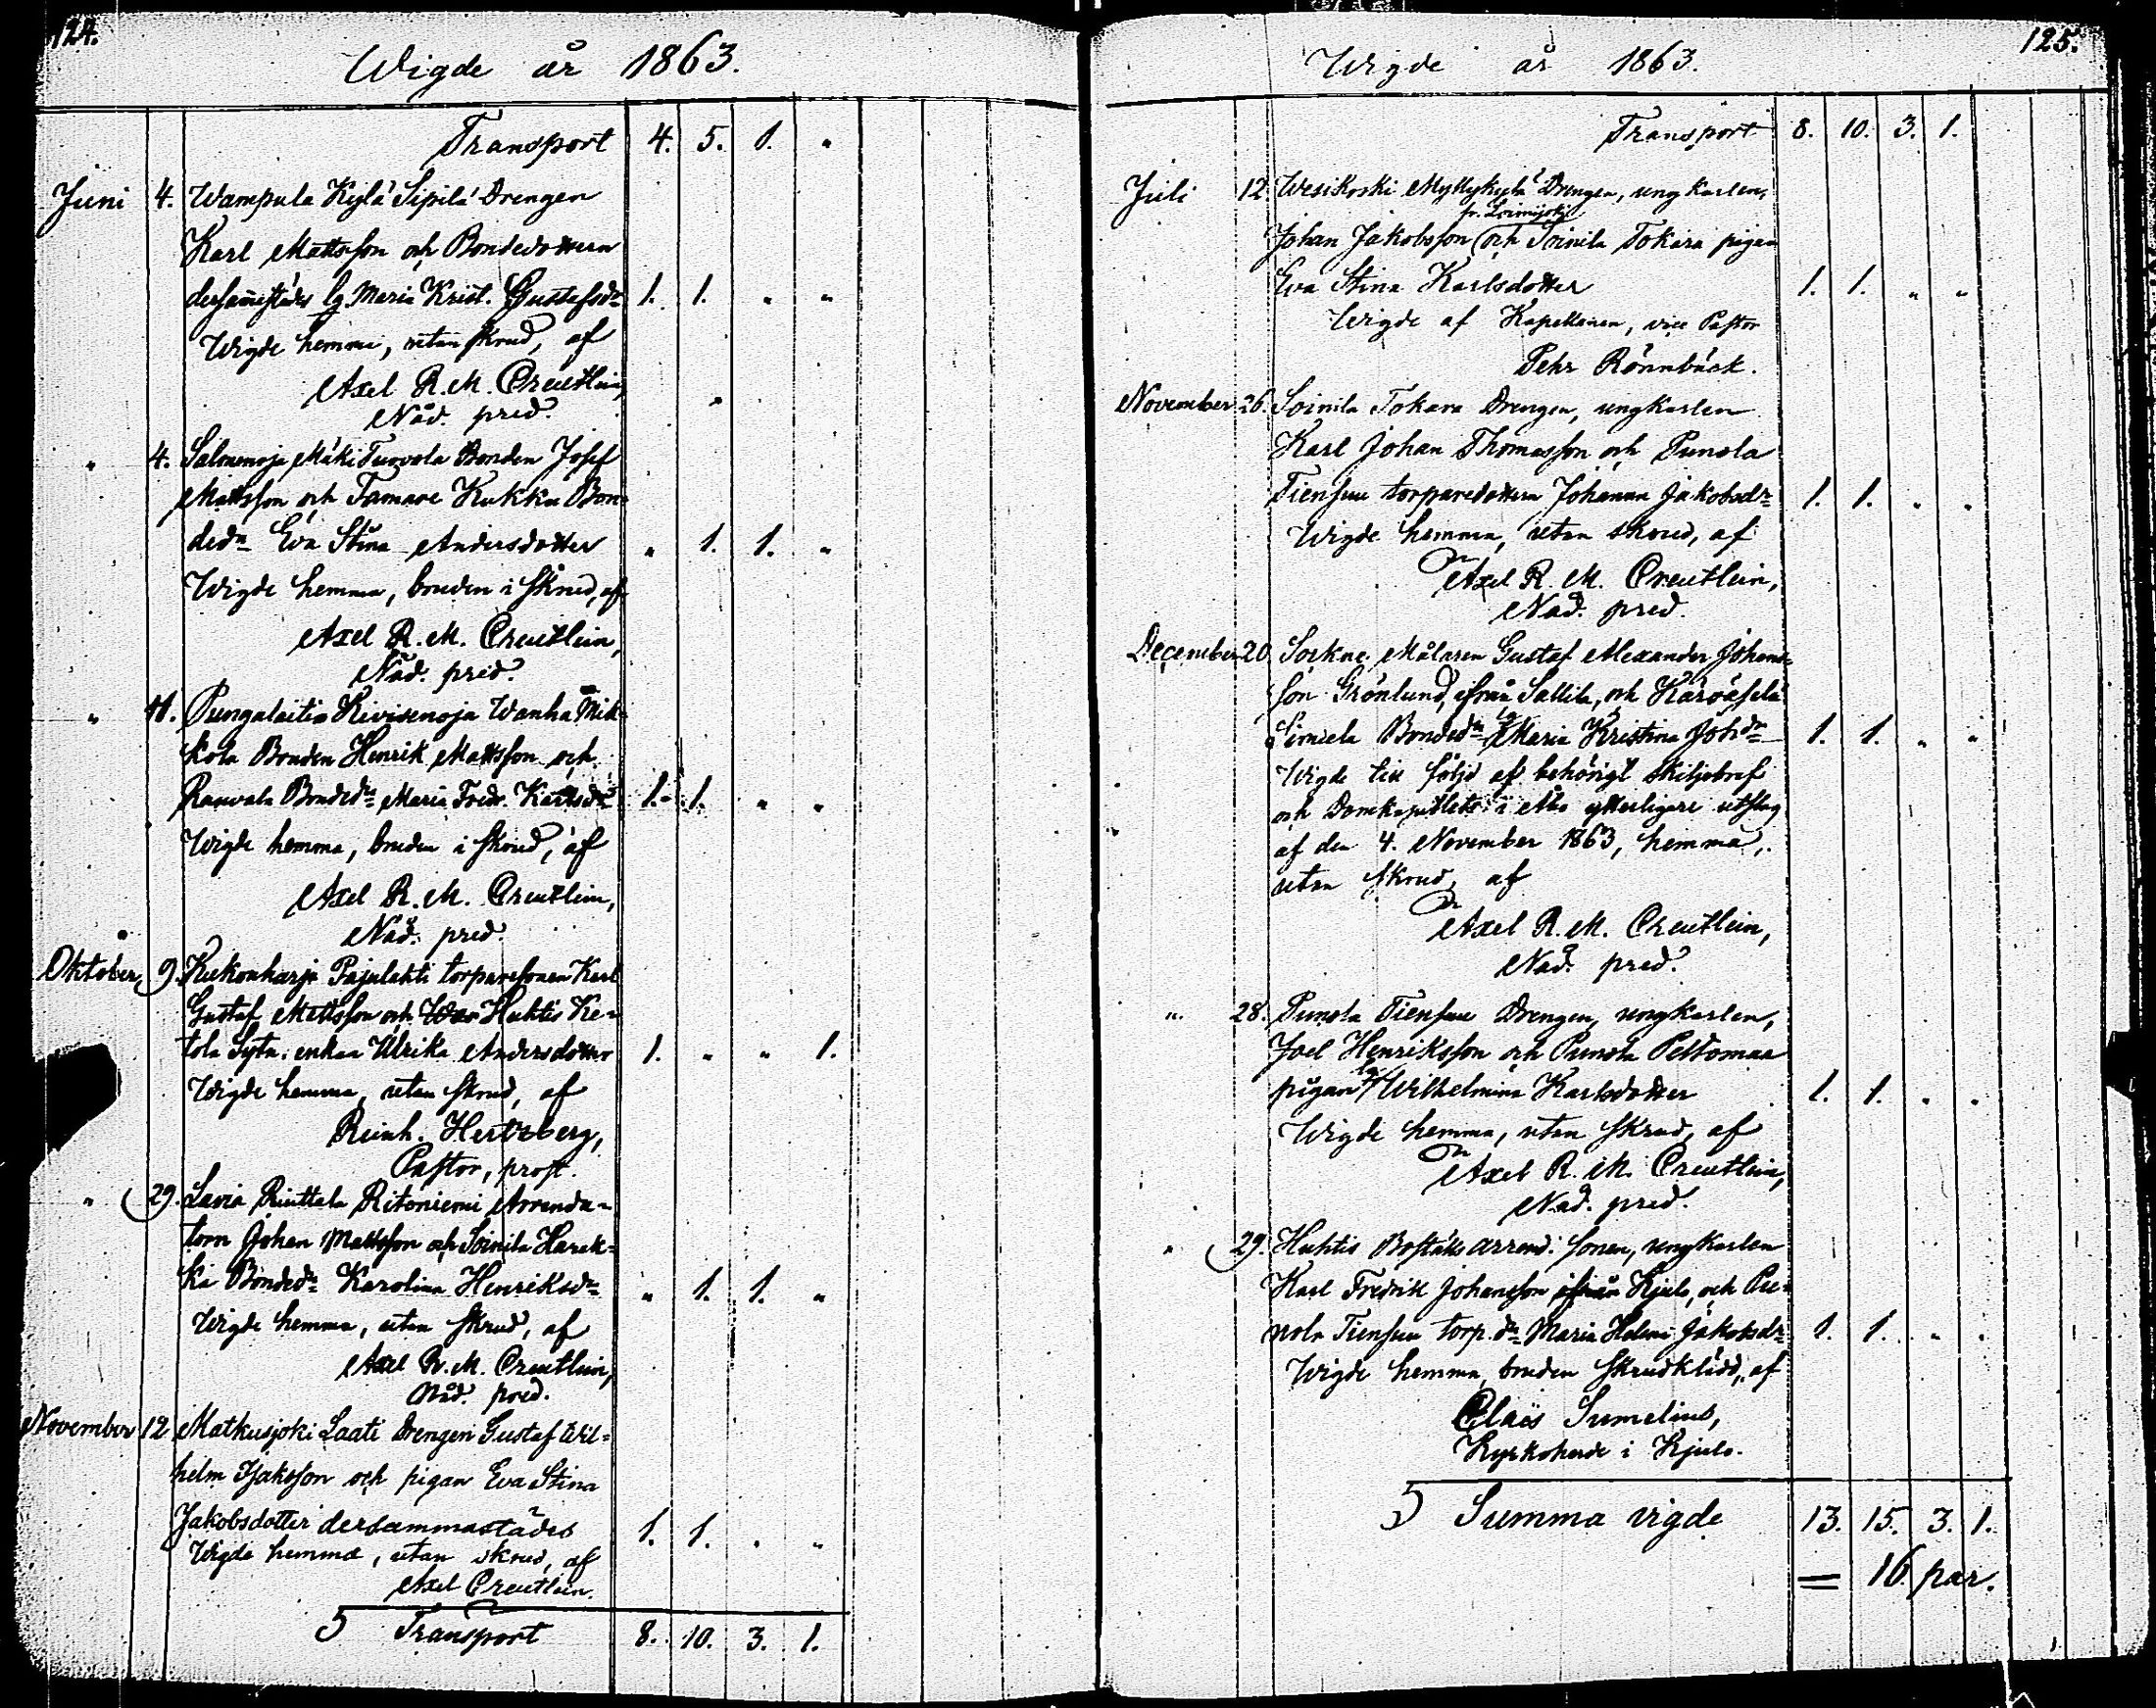 124.
Wigde år 1863.
Transport 4. 5. 1. "
Juni 4. Wampula Kylä Sipilä Drengen
Karl Mattsson och Bondedottern
dersammestädes Maria Krist. Gustafsdr 1. 1. " "
Wigde hemma, utan skrud, af
Axel R. M. Creutlein,
Nåd. pred.
" 4. Salomenoja Mäki Turvola Bonden Josef
Mattsson och Tamare Kukku Bon-
dedr Eva Stina Andersdotter " 1. 1. "
Wigde hemma, bruden i skrud, af
Axel R. M. Creutlein,
Nåd. pred.
" 11. Pungalaitio Kivisenoja Wanha Mik-
kola Bonden Henrik Mattsson och
Rauvala Bondedr Maria Fredr. Karlsdr 1. 1. " "
Wigde hemma, bruden i skrud, af
Axel R. M. Creutlein,
Nåd. pred.
Oktober 9. Kukonharja Pajulahti torparesonen Karl
Gustaf Mattsson och Huhtis Ke-
tola Sytn. enkan Ulrika Andersdotter 1. " " 1.
Wigde hemma, utan skrud, af
Reinh. Hertzberg,
Pastor, prost.
" 29. Lavia Riuttala Ritoniemi Arrenda-
torn Johan Mattsson och Soinila Harak-
ka Bondedr Karolina Henriksdr " 1. 1. "
Wigde hemma, utan skrud, af
Axel R. M. Creutlein,
Nåd. pred.
November 12 Matkusjoki Laati Drengen Gustaf Wil-
helm Isaksson och pigan Eva Stina
Jakobsdotter dersammastädes 1. 1. " "
Wigde hemma, utan skrud, af
Axel Creutlein.
Transport 8. 10. 3. 1.
125.
Wigde år 1863.
Transport 8. 10. 3. 1.
Juli 12. Wesikoski Myllykylä Drengen, ungkarlen,
fr. Loimijoki
Johan Jakobsson och Soinila Tokara pigan
Eva Stina Karlsdotter 1. 1. " "
Wigde af Kapellanen, vice Pastor
Pehr Rönnbäck.
November 26. Soinila Tokara Drengen, ungkarlen
Karl Johan Thomasson och Punola
Tiensuu torparedottern Johanna Jakobsdr 1. 1. " "
Wigde hemma, utan skrud, af
Axel R. M. Creutlein,
Nåd. pred.
December 20 Sockne Målaren Gustaf Alexander Johans-
son Grönlund, ifrån Sallila, och
Bondedr Maria Kristina Johdr 1. 1. " "
Wigde till följd af behörigt skiljobref
och Domkapitlets i Åbo ytterligare utslag
af den 4. November 1863, hemma,
utan skrud, af
Axel R. M. Creutlein,
Nåd. pred.
" 28. Punola Tiensuu Drengen, ungkarlen,
Joel Henriksson och Punola Peltomaa
pigan Wilhelmina Karlsdotter 1. 1. " "
Wigde hemma, utan skrud, af
Axel R. M. Creutlein,
Nåd. pred.
" 29. Huhtis Boställs arrend. sonen, ungkarlen
Karl Fredrik Johansson ifrån Kjulo, och Pu-
nola Tiensuu torp. dr Maria Helena Jakobsdr 1. 1. " "
Wigde hemma, bruden skrudklädd, af
Claës Sumelius,
Kyrkoherde i Kjulo.
Summa vigde 13. 15. 3. 1.
= 16 par.